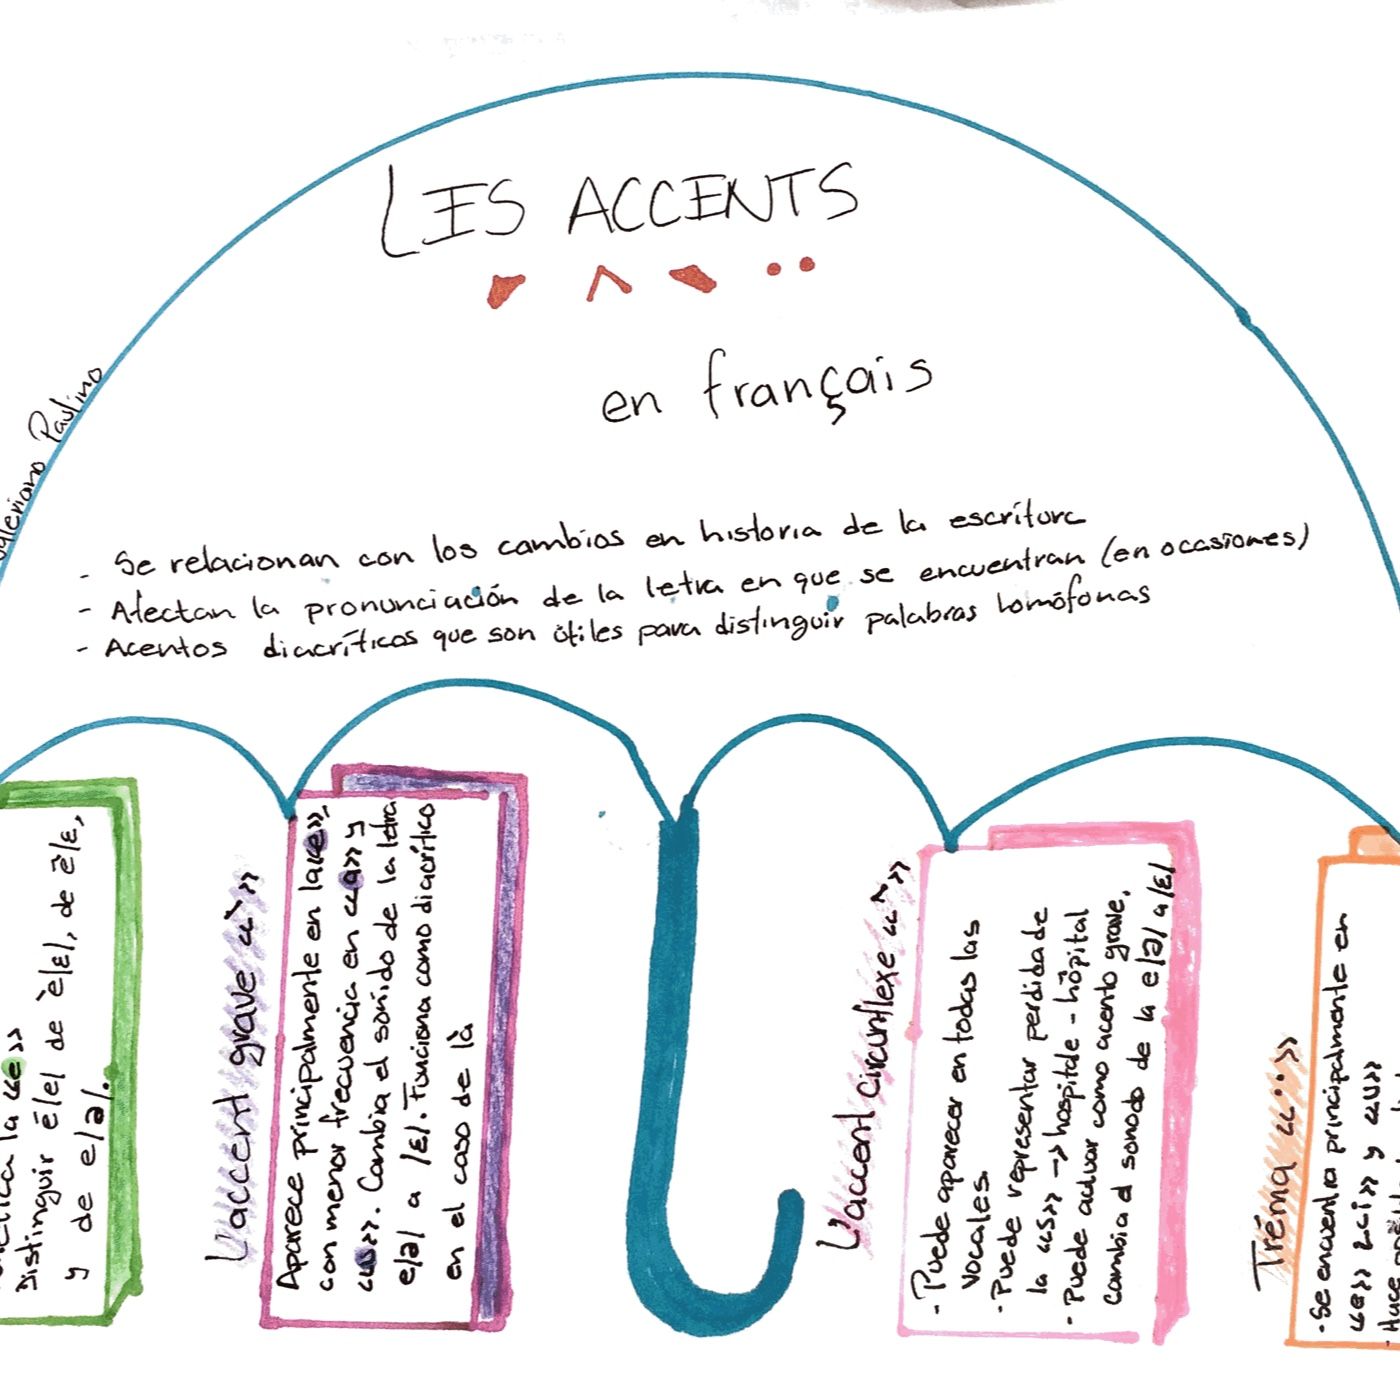 LES ACCENTS
en français
Paulino
- Se relacionan con los cambios en historia de la escritura
- Afectan la pronunciación de la letra en que se encuentran (en ocasiones)
- Acentos diacríticos que son útiles para distinguir palabras homófonas
la «e»
Distinguir é/e/ de è/ɛ/, de ê/ɛ/,
y de e/ə/.
L'accent grave «`»
Aparece principalmente en la «e»,
con menor frecuencia en «a» y
«u». Cambia el sonido de la letra
e/ə/ a /ɛ/. Funciona como diacrítico
en el caso de là
L'accent circunflexe «^»
- Puede aparecer en todas las
vocales
- Puede representar perdida de
la «s» → hospitale - hôpital
- Puede actuar como acento grave,
cambia el sonodo de la e/ə/ a /ɛ/
Tréma «··»
- Se encuentra principalmente en
«e» «i» y «u»
- Hace